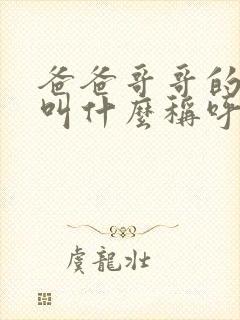 爸爸哥哥的
叫什麼稱呼
虞龍壯